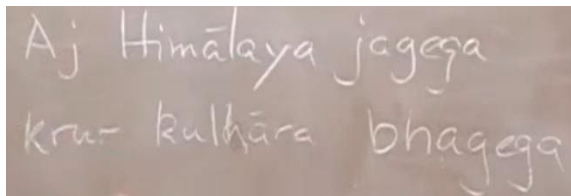 Aj Himālaya jagega
krur kulhāra bhagega